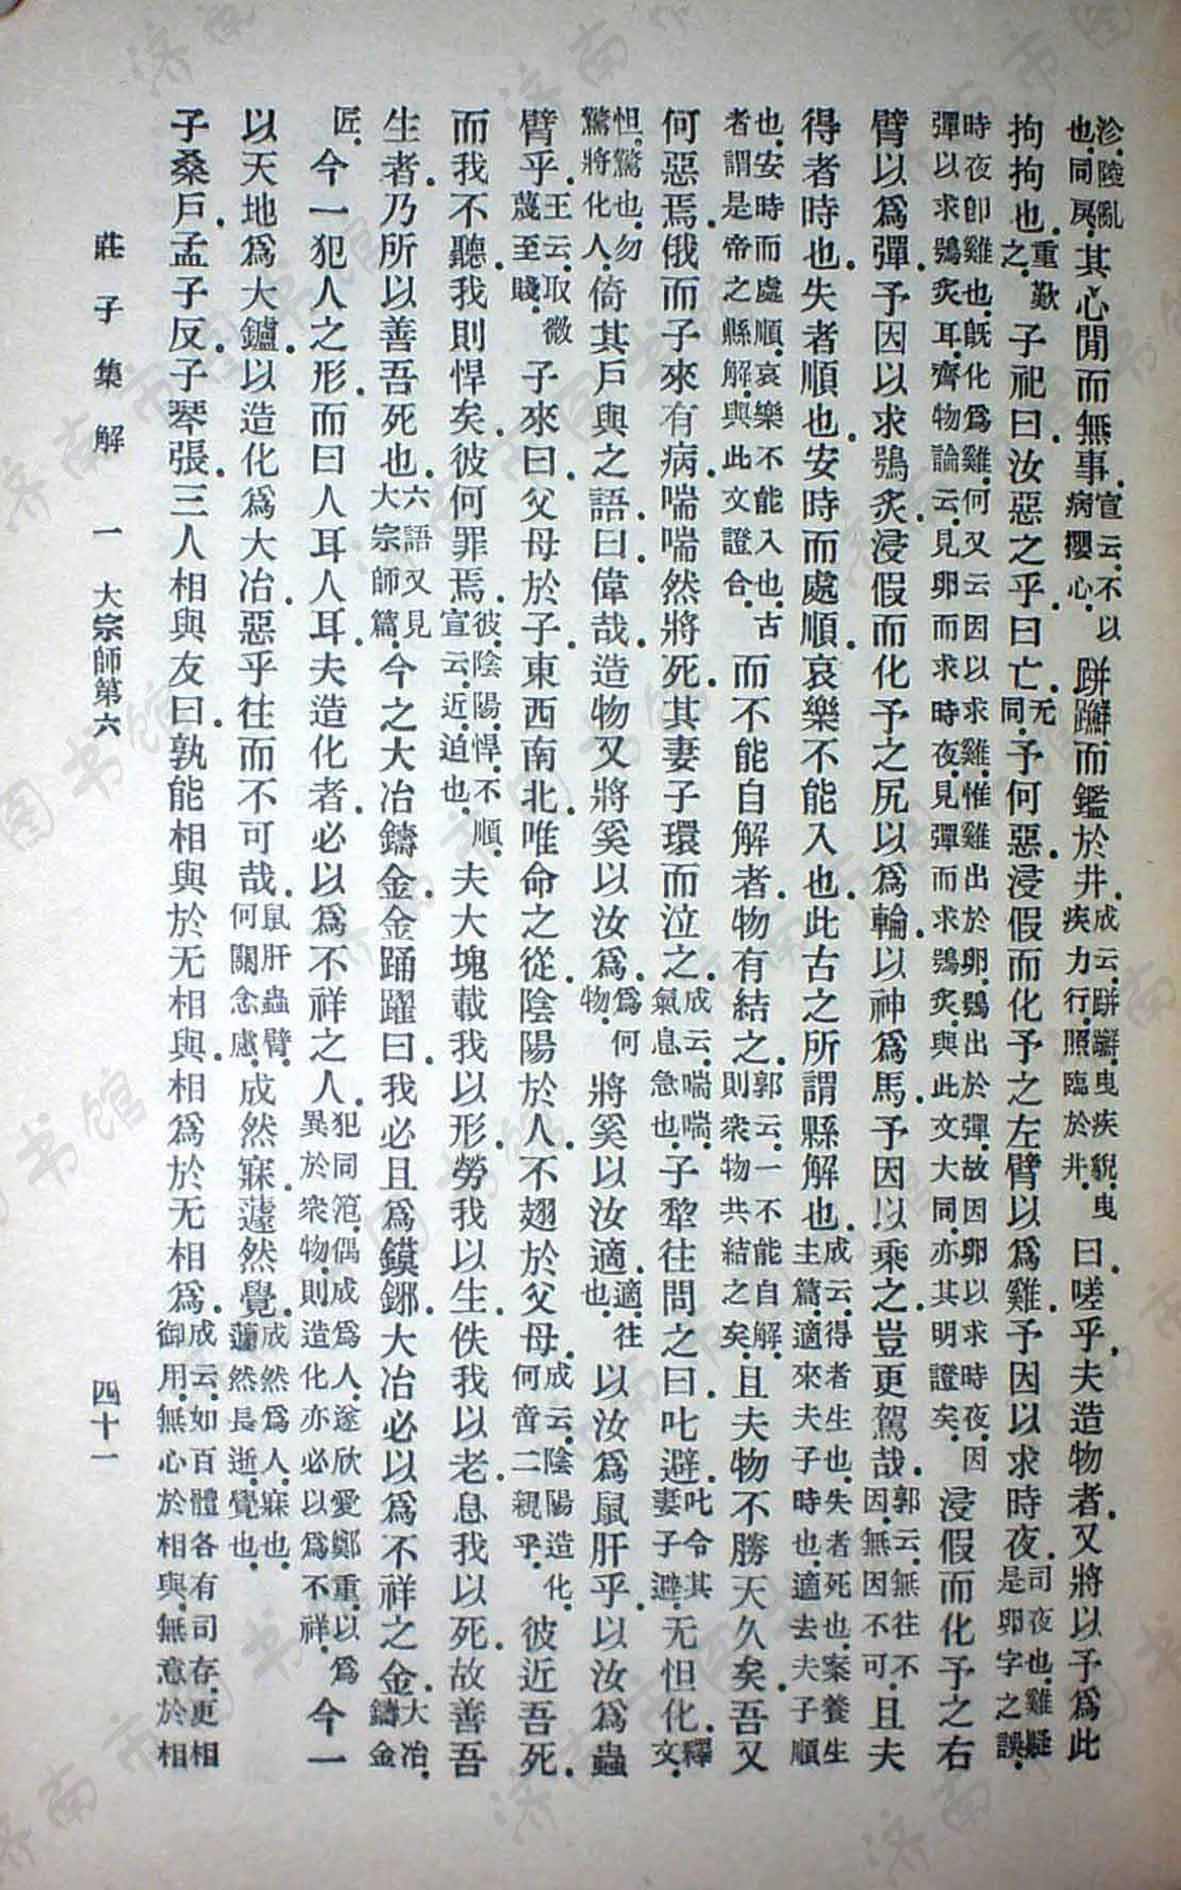 沴陵亂也同戾其心閒而無事宣云不以病攖心跰𨇤而鑑於井成云跰𨇤曳疾貌曳疾力行照臨於井曰嗟乎夫造物者又將以予爲此
拘拘也重歎之子祀曰汝惡之乎曰亡无同予何惡浸假而化予之左臂以爲雞予因以求時夜司夜也雞疑是卵字之誤
時夜卽雞也旣化爲雞何又云因以求雞惟雞出於卵鴞出於彈故因卵以求時夜因彈以求鴞炙耳齊物論云見卵而求時夜見彈而求鴞炙與此文大同亦其明證矣浸假而化予之右
臂以爲彈予因以求鴞炙浸假而化予之尻以爲輪以神爲馬予因以乘之豈更駕哉郭云無往不因無因不可且夫
得者時也失者順也安時而處順哀樂不能入也此古之所謂縣解也成云得者生也失者死也案養生主篇適來夫子時也適去夫子順
也安時而處順哀樂不能入也古者謂是帝之縣解與此文證合而不能自解者物有結之郭云一不能自解則衆物共結之矣且夫物不勝天久矣吾又
何惡焉俄而子來有病喘喘然將死其妻子環而泣之成云喘喘氣息急也子犂往問之曰叱避叱令其妻子避无怛化釋文
怛驚也勿驚將化人倚其戶與之語曰偉哉造物又將奚以汝爲爲何物將奚以汝適適往也以汝爲鼠肝乎以汝爲蟲
臂乎王云取微蔑至賤子來曰父母於子東西南北唯命之從陰陽於人不翅於父母成云陰陽造化何啻二親乎彼近吾死
而我不聽我則悍矣彼何罪焉彼陰陽悍不順宣云近迫也夫大塊載我以形勞我以生佚我以老息我以死故善吾
生者乃所以善吾死也六語又見大宗師篇今之大冶鑄金金踊躍曰我必且爲鏌鋣大冶必以爲不祥之金大冶鑄金
匠今一犯人之形而曰人耳人耳夫造化者必以爲不祥之人犯同笵偶成爲人遂欣愛鄭重以爲異於衆物則造化亦必以爲不祥今一
以天地爲大鑪以造化爲大冶惡乎往而不可哉鼠肝蟲臂何關念慮成然寐蘧然覺成然爲人寐也蘧然長逝覺也
子桑戶孟子反子琴張三人相與友曰孰能相與於无相與相爲於无相爲成云如百體各有司存更相御用無心於相與無意於相
莊子集解　一　大宗師第六　四十一